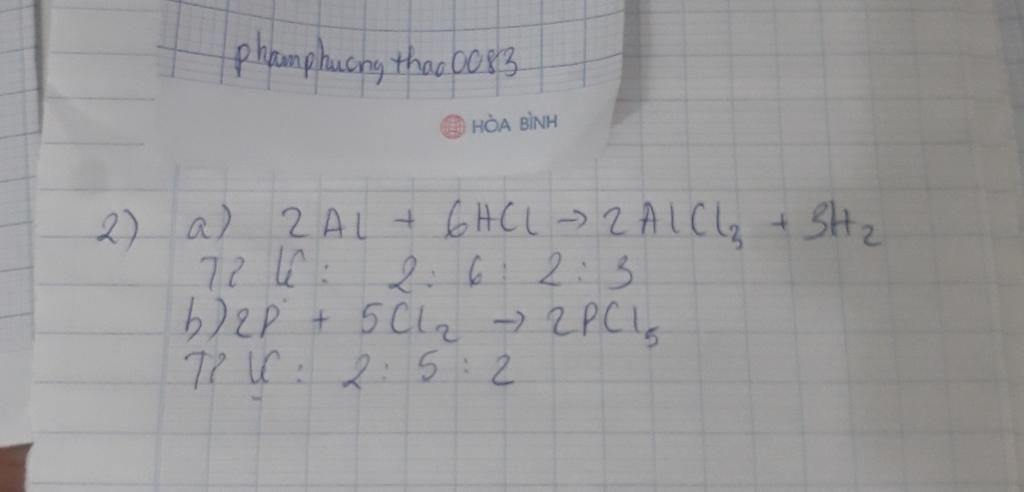 phamphuongthao0083
HÒA BÌNH
2) a) 2Al + 6HCl → 2AlCl₃ + 3H₂
Tỉ lệ: 2 : 6 : 2 : 3
b) 2P + 5Cl₂ → 2PCl₅
Tỉ lệ: 2 : 5 : 2